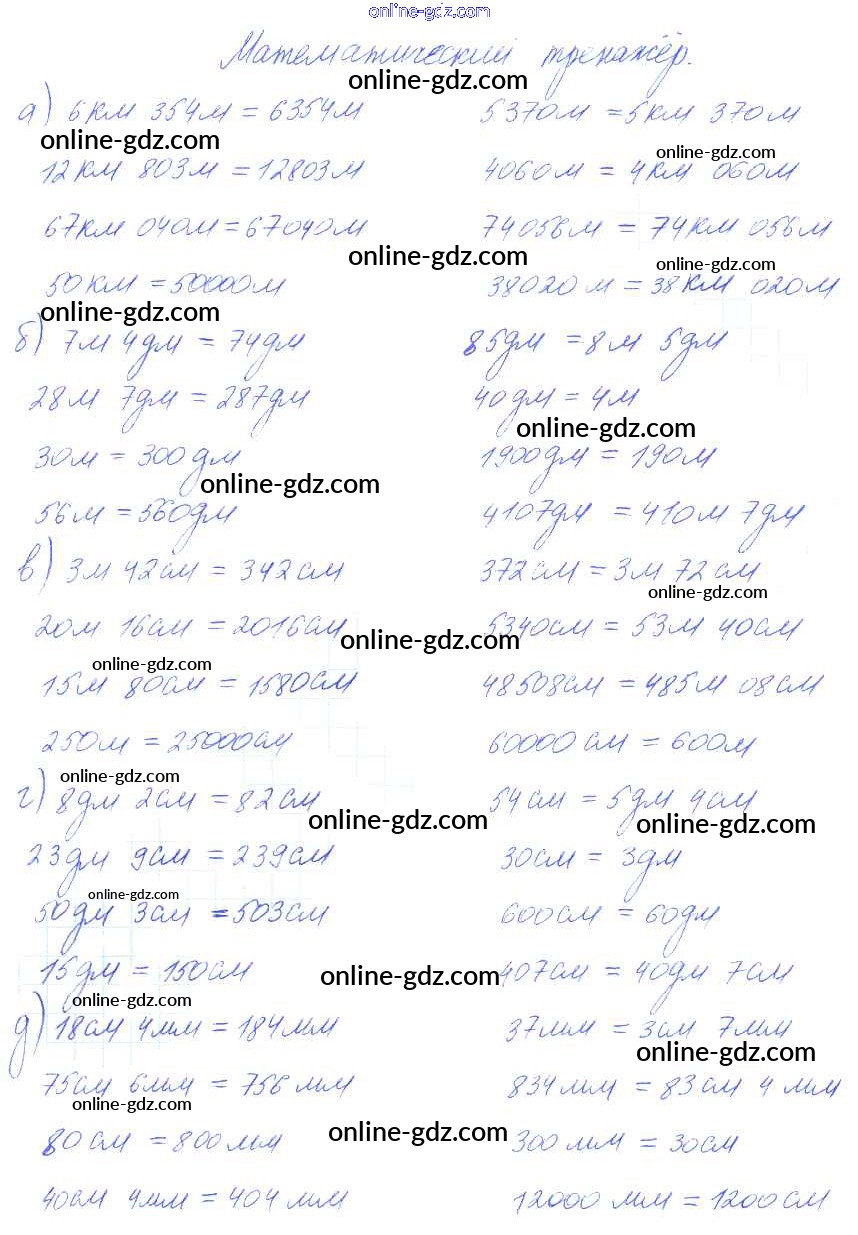 online-gdz.com
Математический тренажёр.
online-gdz.com
а) 6км 354м = 6354м 5370м = 5км 370м
online-gdz.com
online-gdz.com
12км 803м = 12803м 4060м = 4км 060м
67км 040м = 67040м 74056м = 74км 056м
online-gdz.com
online-gdz.com
50км = 50000м 38020м = 38км 020м
online-gdz.com
б) 7м 4дм = 74дм 85дм = 8м 5дм
28м 7дм = 287дм 40дм = 4м
online-gdz.com
30м = 300дм 1900дм = 190м
online-gdz.com
56м = 560дм 4107дм = 410м 7дм
в) 3м 42см = 342см 372см = 3м 72см
online-gdz.com
20м 16см = 2016см 5340см = 53м 40см
online-gdz.com
online-gdz.com
15м 80см = 1580см 48508см = 485м 08см
250м = 25000см 60000см = 600м
online-gdz.com
г) 8дм 2см = 82см 54см = 5дм 4см
online-gdz.com
online-gdz.com
23дм 9см = 239см 30см = 3дм
online-gdz.com
50дм 3см = 503см 600см = 60дм
15дм = 150см 407см = 40дм 7см
online-gdz.com
online-gdz.com
д) 18см 4мм = 184мм 37мм = 3см 7мм
online-gdz.com
75см 6мм = 756мм 834мм = 83см 4мм
online-gdz.com
online-gdz.com
80см = 800мм 300мм = 30см
40см 4мм = 404мм 12000мм = 1200см